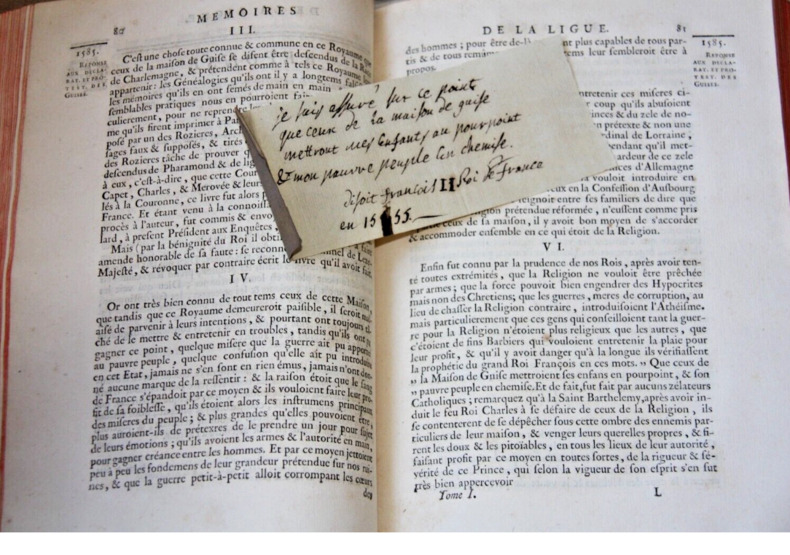 80
MEMOIRES
III.
1585.
REPONSE
AUX DECLA-
RAT. ET PRO-
TEST. DES
GUISES.
C'est une chose toute connue & commune en ce Royaume que
ceux de la maison de Guise se disent être descendus de la
de Charlemagne, & prétendent comme à tels ce Royaume
appartenir: les Généalogies qu'ils ont il y a longtems
les mémoires qu'ils en ont semés de main en main
semblables pratiques nous en pourroient
culierement, pour ne reprendre
me qu'ils firent imprimer à Pa
posé par un des Rozieres, Arch
sages faux & supposés, & tirés
des Rozieres tâche de prouver
descendus de Pharamond & de
à eux, c'est-à-dire, que cette Cou
Capet, Charles, & Merovée & leurs
lés à la Couronne, ce livre fut alors
France. Et étant venu à la connoiss
procès à l'auteur, fut commis & envo
lard, à présent Président aux Enquêtes
Mais (par la bénignité du Roi il obtint
amende honorable de sa faute: se reconnut
Majesté, & révoquer par contraire écrit le livre qu'il avoit fait.
IV.
Or ont très bien connu de tout tems ceux de cette Maison,
que tandis que ce Royaume demeureroit paisible, il seroit mal-
aisé de parvenir à leurs intentions, & pourtant ont toujours tâ-
ché de le mettre & entretenir en troubles, tandis qu'ils ont
gagner ce point, quelque misere que la guerre ait pu apporter
au pauvre peuple, quelque confusion qu'elle ait pu introduire
en cet Etat, jamais ne s'en sont en rien émus, jamais n'ont don-
né aucune marque de la ressentir: & la raison étoit que le sang
de France s'épandoit par ce moyen & ils vouloient faire leur pro-
fit de sa foiblesse, qu'ils étoient alors les instrumens principaux
des miseres du peuple; & plus grandes qu'elles pouvoient être,
plus auroient-ils de prétextes de le prendre un jour pour sujet
de leurs émotions; qu'ils avoient les armes & l'autorité en main,
pour gagner créance entre les hommes. Et par ce moyen jettoient
peu à peu les fondemens de leur grandeur prétendue sur nos rui-
nes, & que la guerre petit-à-petit alloit corrompant les cœurs
des
je suis assuré sur ce point
que ceux de la maison de guise
mettront mes Enfants au pourpoint
& mon pauvre peuple En chemise.
disoit françois II Roi de France
en 1555.
DE LA LIGUE.
81
1585.
REPONSE
AUX DECLA-
RAT. ET PRO-
TEST. DES
GUISES.
des hommes; pour être de-là
tant plus capables de tous par-
tis & de tous remu
tiens leur sembleroit être à
propos.
ntretenir ces miseres ci-
coup qu'ils abusoient
inces & du zele de no-
n prétexte & non une
rdinal de Lorraine,
endant qu'il met-
ardeur de ce zele
inces d'Allemagne
vouloit introduire en
eux en la Confession d'Ausbourg
eignoit entre ses familiers de dire que
gion prétendue réformée, n'eussent comme pris
parti ceux de sa maison, il y avoit bon moyen de s'accorder
& accommoder ensemble en ce qui étoit de la Religion.
VI.
Enfin fut connu par la prudence de nos Rois, après avoir ten-
té toutes extrémités, que la Religion ne vouloit être prêchée
par armes; que la force pouvoit bien engendrer des Hypocrites
mais non des Chretiens; que les guerres, meres de corruption, au
lieu de chasser la Religion contraire, introduisoient l'Athéisme.
mais particulierement que ces gens qui conseilloient tant la guer-
re pour la Religion n'étoient plus religieux que les autres, que
c'étoient de fins Barbiers qui vouloient entretenir la plaie pour
leur profit, & qu'il y avoit danger qu'à la longue ils vérifiassent
la prophétie du grand Roi François en ces mots. „ Que ceux de
„ la Maison de Guise mettroient ses enfans en pourpoint, & son
„ pauvre peuple en chemise. Et de fait, fut fait par aucuns zélateurs
Catholiques; remarquez qu'à la Saint Barthelemy, après avoir in-
duit le feu Roi Charles à se défaire de ceux de la Religion, ils
se contenterent de se dépêcher sous cette ombre des ennemis par-
ticuliers de leur maison, & venger leurs querelles propres, & fi-
rent les doux & les pitoiables, en tous les lieux de leur autorité,
faisant profit par ce moyen en toutes sortes, de la rigueur & sé-
vérité de ce Prince, qui selon la vigueur de son esprit s'en sut
très bien appercevoir
Tome I.
L